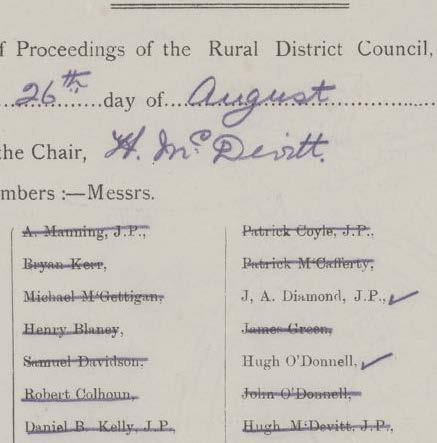 f Proceedings of the Rural District Council,
26th day of August
the Chair, H. McDevitt.
mbers :—Messrs.
A. Manning, J.P.,
Bryan Kerr,
Michael M'Gettigan,
Henry Blaney,
Samuel Davidson,
Robert Colhoun,
Daniel B. Kelly, J.P.,
Patrick Coyle, J.P.,
Patrick M'Cafferty,
J, A. Diamond, J.P.,
James Green,
Hugh O'Donnell,
John O'Donnell,
Hugh M'Devitt, J.P.,